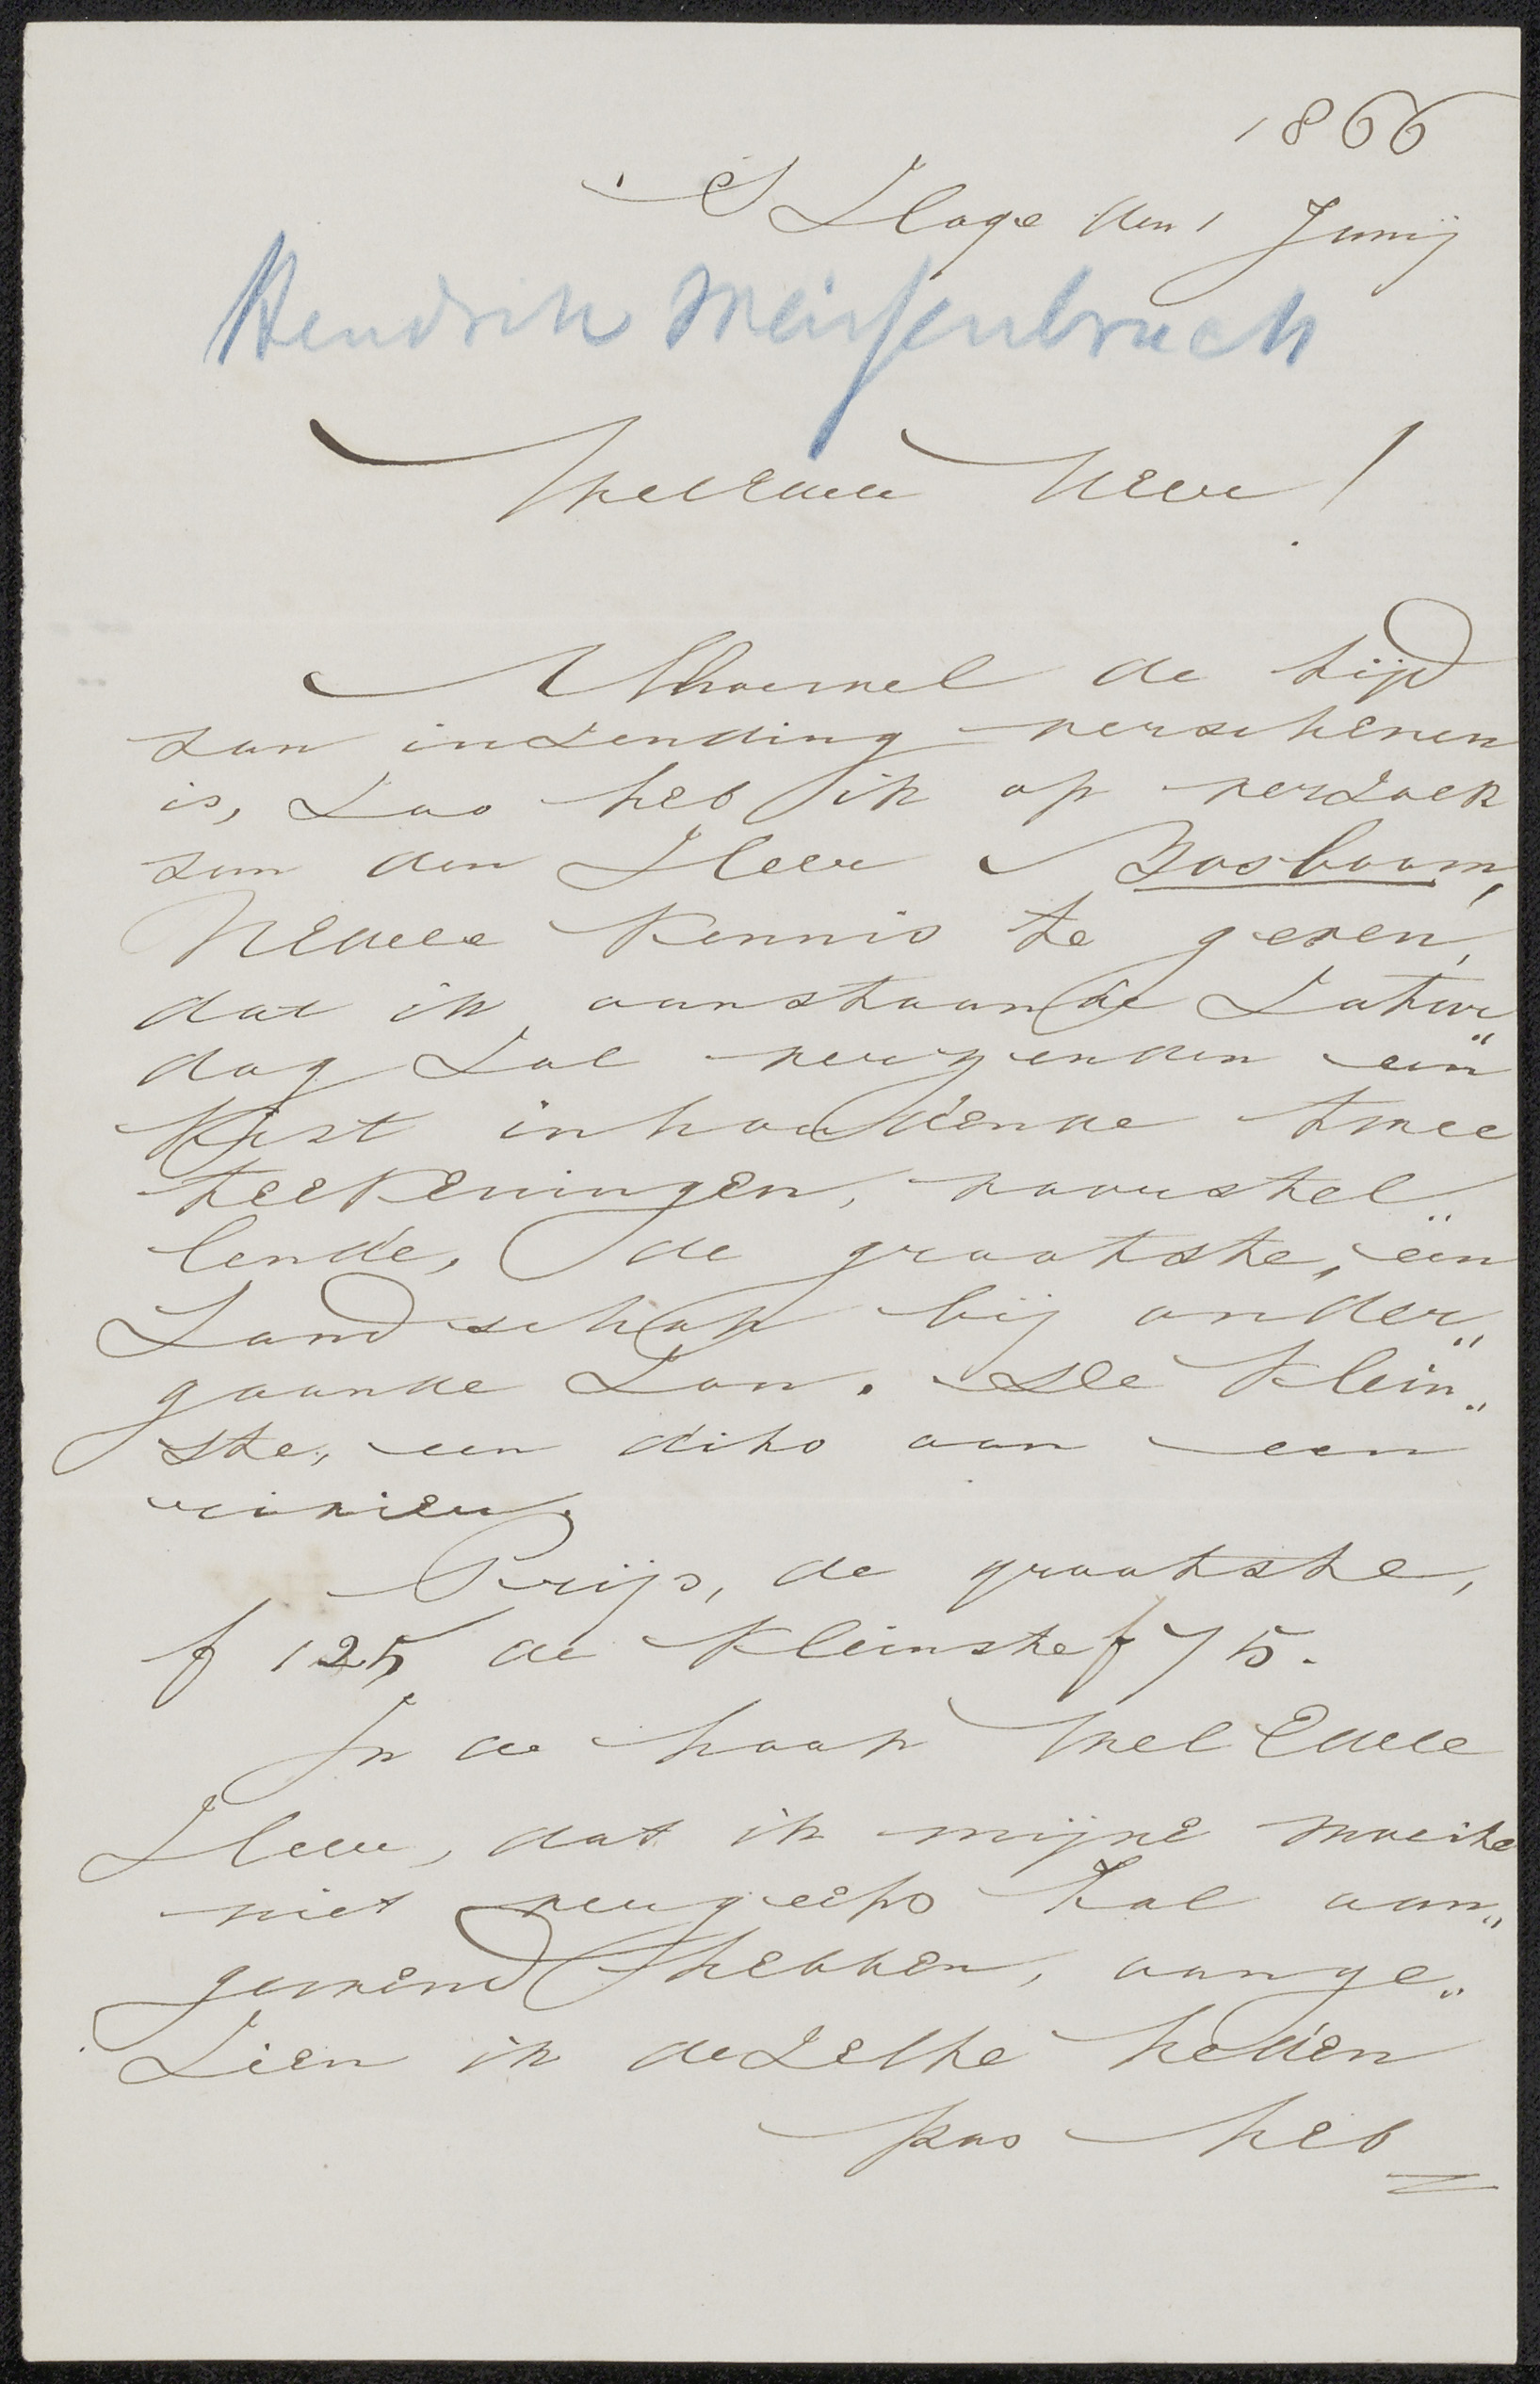 1866
'S Hage den 1 Junij
Hendrik Weissenbruch
WelEdele Heer!
Alhoewel de tijd
van inzending verschenen
is, zoo heb ik op verzoek
van den Heer Bosboom,
UEdele kennis te geven,
dat ik aanstaande Zatur„
dag zal verzenden een
kist inhoudende twee
teekeningen, voorstel„
lende, de grootste, een
Landschap bij onder„
gaande Zon. De klein„
ste, een dito aan een
rivier.
Prijs, de grootste,
f 125 de kleinste f 75.
In de hoop WelEdele
Heer, dat ik mijne moeite
niet vergeefs zal aan„
gewend hebben, aange„
zien ik dezelke heden
pas heb